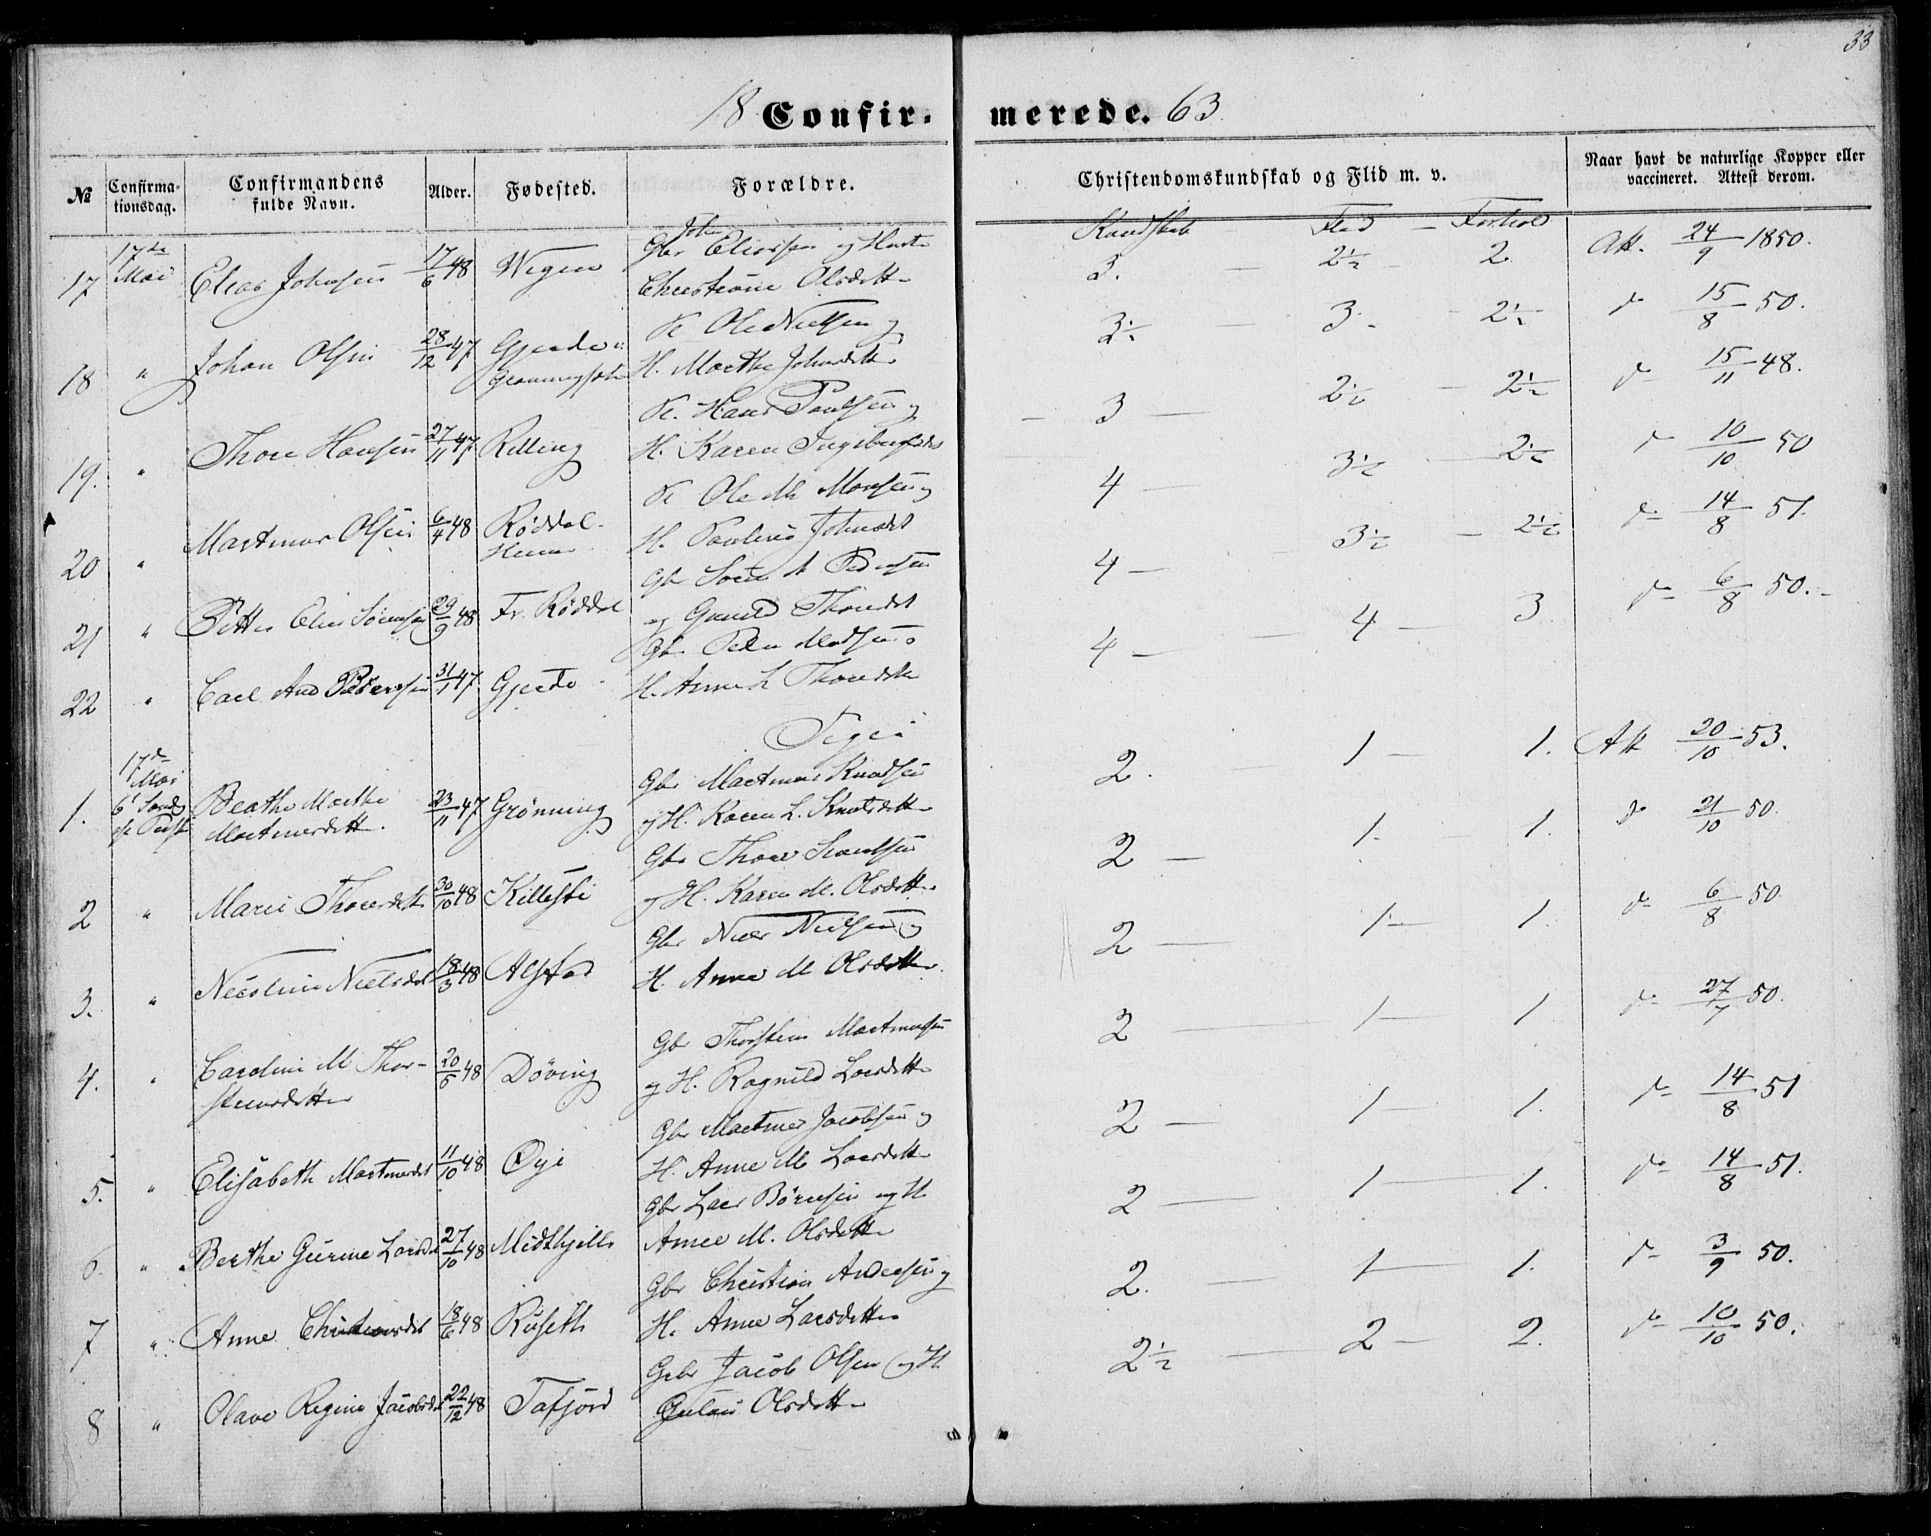 33
18 Confir- merede. 63
№ Confirma-tionsdag. Confirmandens fulde Navn. Alder. Fødested. Forældre. Christendomskundskab og Flid m. v. Naar havt de naturlige Kopper eller vaccineret. Attest derom.
Kundskab – Flid – Forhold
17 17de Mai Elias Johnsen 17/6 48 Gbr John Eliassen og Hustr Christiane Olsdtt 3. – 2½ – 2 Att. 24/9 1850.
18 " Johan Olsen 28/12 47 Gjerde K Ole Nielsen og H. Marthe Johnsdtt 3½ – 3 – 2½ do 15/8 50.
19. " Thore Hansen 27/11 47 Relling K. Hans Paulsen og H. Karen Ingebrigtsdt – 3 – 2½ – 2½ do 15/11 48.
20 " Martinus Olsen 6/4 48 Røddal K Ole M. Monsen og H. Pauline Johnsdt 4 – 3½ – 2½ do 10/10 50
21 " Petter Elias Sørensen 29/9 48 Fr. Røddal Gbr Søren A Pedersen og Gunild Thoresdt 4 – 3½ – 2½ do 14/8 51.
22 " Carl And Pedersen 31/1 47 Gjerde Gbr. Peder Madsen og H. Anne L Thoresdtt 4 – 4 – 3 do 6/8 50.
Piger
1. 17de Mai Berthe Marthe Martinusdtt. 23/11 47 Grønning Gbr Martinus Knudsen og H. Karen L. Knutsdtt 2. – 1 – 1. Att 20/10 53.
2 " Marie Thoresdtt 30/10 48 Killesti Gbr Thore og H. Karen M. Olsdtt. 2 – 1 – 1. do 21/10 50.
3. " Nicoline Nielsdtt 18/3 48 Alstad Gbr Niels Nielsen og H. Anne M Olsdtt 2 – 1 – 1. do 6/8 50.
4. " Caroline M. Thor-steinsdtt 20/5 48 Døving Gbr Thorstein Martinussen og H. Ragnild Larsdtt 2 – 1 – 1. do 27/7 50.
5. " Elisabeth Martinusdt 11/10 48 Øye Gbr Martinus Jacobsen og H. Anne M Larsdtt 2 – 1 – 1. do 14/8 51
6. " Berthe Gurine Larsdt 27/10 48 Midthjell Gbr Lars Børresen og H Anne M. Olsdtt 2 – 1 – 1. do 14/8 51.
7 " Anne Christiansdt 18/6 48 Ruseth Gbr Christian Andersen og H. Anne Larsdtt 2. – 1 – 1. do 3/9 50.
8 " Olave Regine Jacobsdt 22/12 48 Tafjord Gbr Jacob Olsen og H Gulau Olsdtt 2½ – 2 – 2. do 10/10 50.